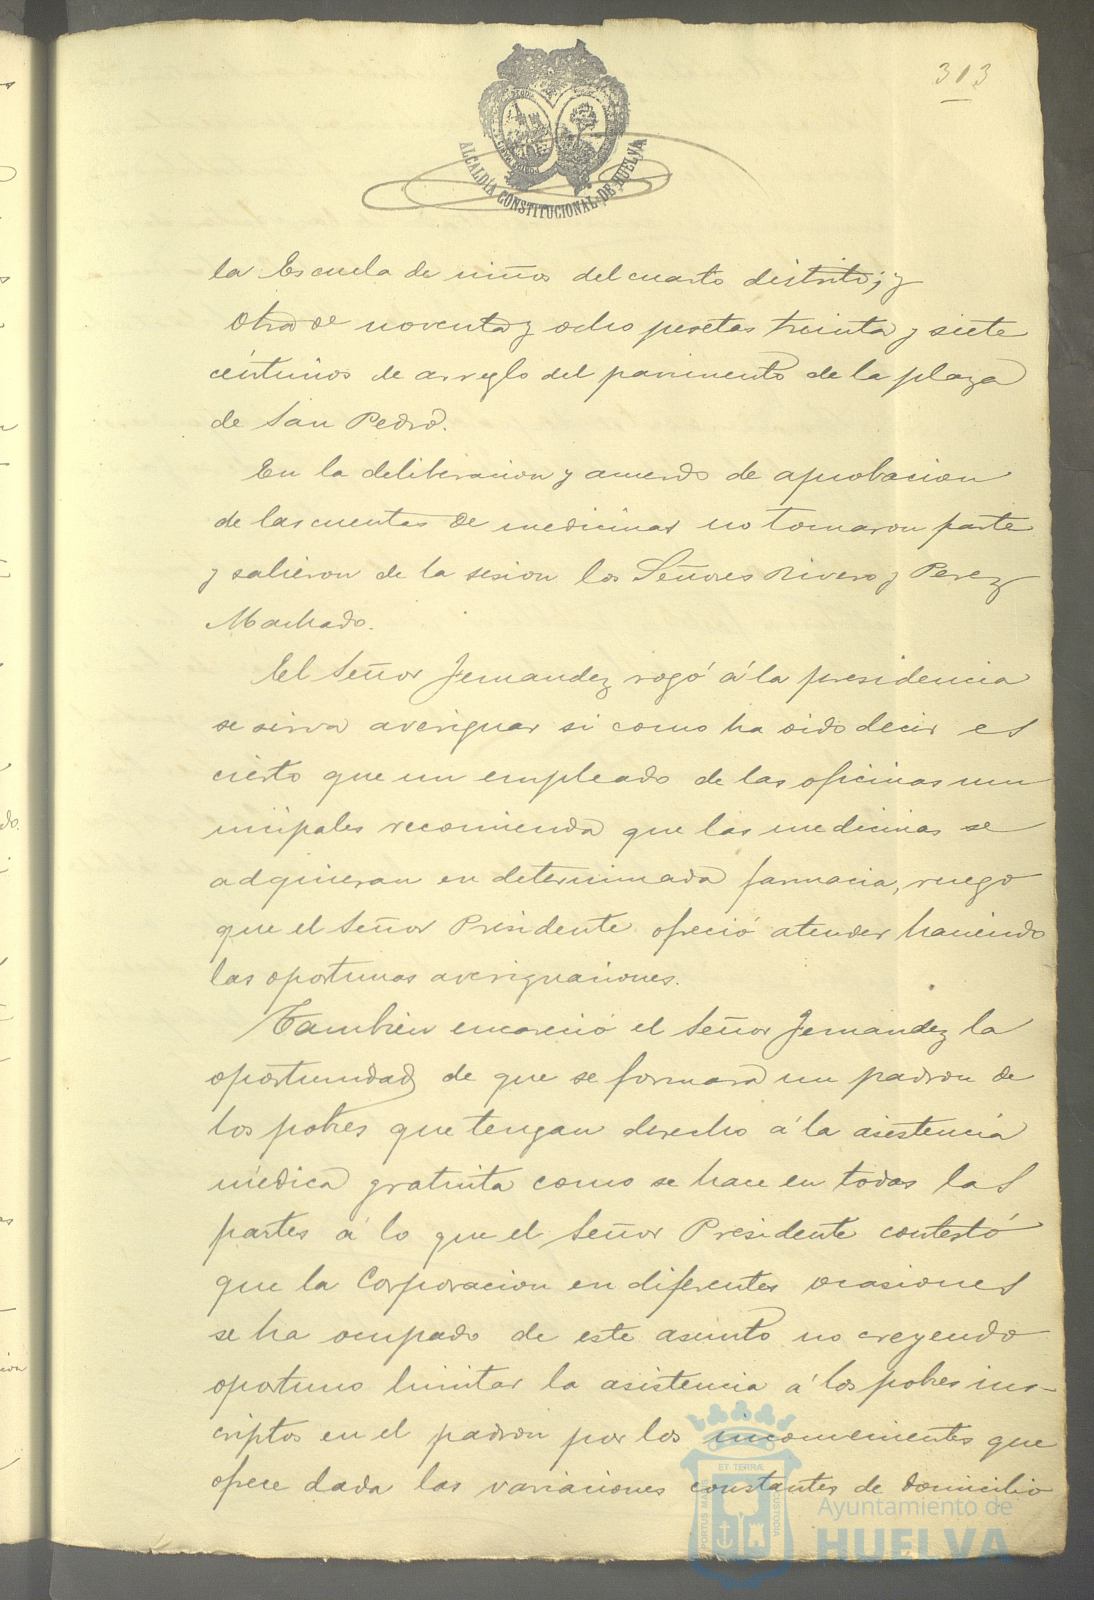 313
ALCALDÍA CONSTITUCIONAL DE HUELVA
la Escuela de niños del cuarto distrito; y
Otra de noventa y ocho pesetas treinta y siete
céntimos de arreglo del pavimento de la plaza
de San Pedro.
En la deliberacion y acuerdo de aprobacion
de las cuentas de medicinas no tomaron parte
y salieron de la sesion los Señores Rivero y Perez
Machado.
El Señor Fernandez rogó á la presidencia
se sirva averiguar si como ha oido decir es
cierto que un empleado de las oficinas mu
nicipales recomienda que las medicinas se
adquieran en determinada farmacia, ruego
que el Señor Presidente ofreció atender haciendo
las oportunas averiguaciones.
Tambien encareció el Señor Fernandez la
oportunidad de que se formara un padron de
los pobres que tengan derecho á la asistencia
médica gratuita como se hace en todas las
partes á lo que el Señor Presidente contestó
que la Corporacion en diferentes ocasiones
se ha ocupado de este asunto no creyendo
oportuno limitar la asistencia á los pobres ins-
criptos en el padron por los inconvenientes que
ofrece dada las variaciones constantes de domicilio
PORTUS MARIS ET TERRÆ CUSTODIA
Ayuntamiento de
HUELVA